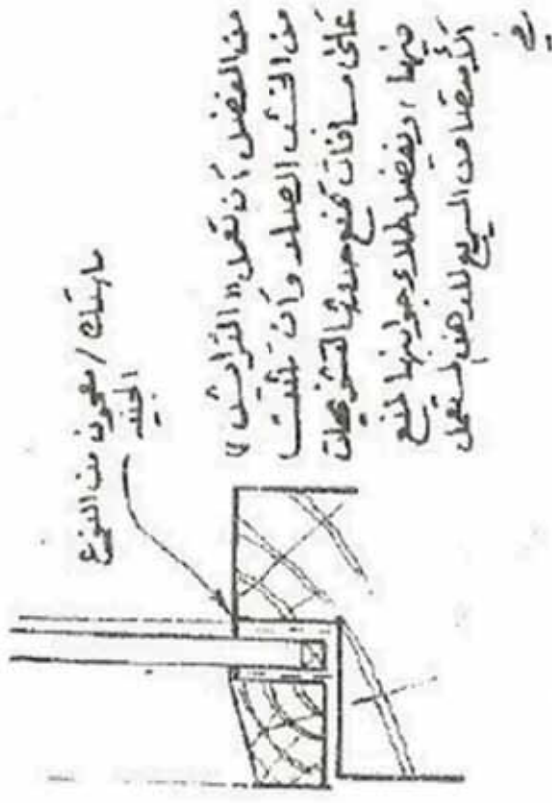 ماستك / معجون من النوع
الجيد
من المفضل أن تعمل
من الخشب الصلد وأن تثبت
على مسافات تمنع حدوث
فيها ، ويفضل طلاء جوانبها لمنع
الأمتصاص السريع للدهن المستعمل
في